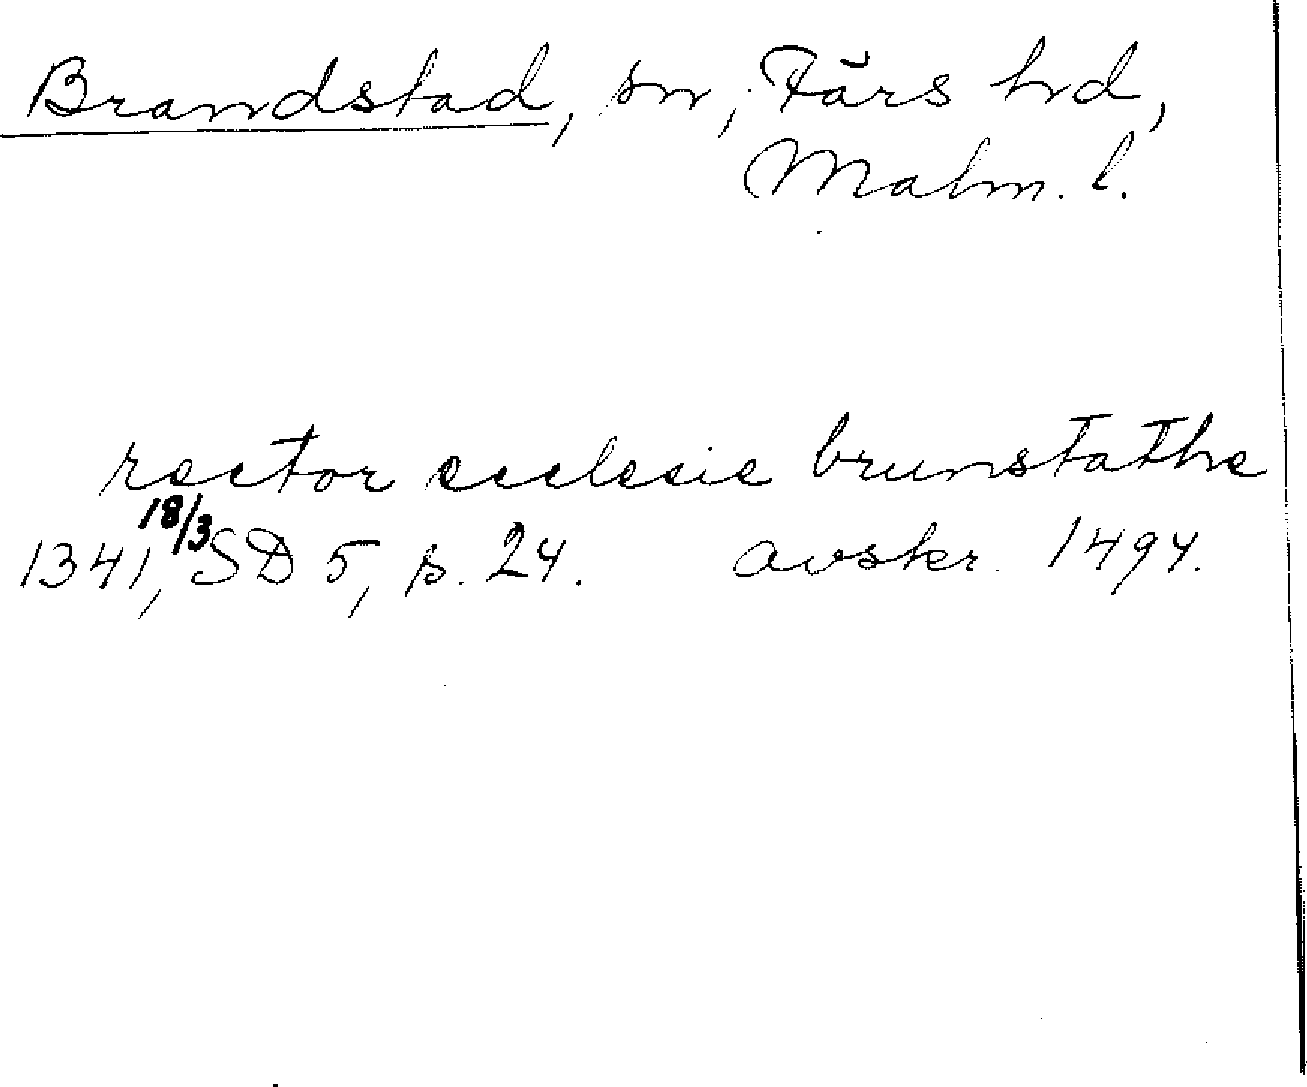 Brandstad, sn, Färs hd,
Malm. l.
rector ecclesie brunstathe
1341, 18/3 SD 5, s. 24. avskr. 1494.